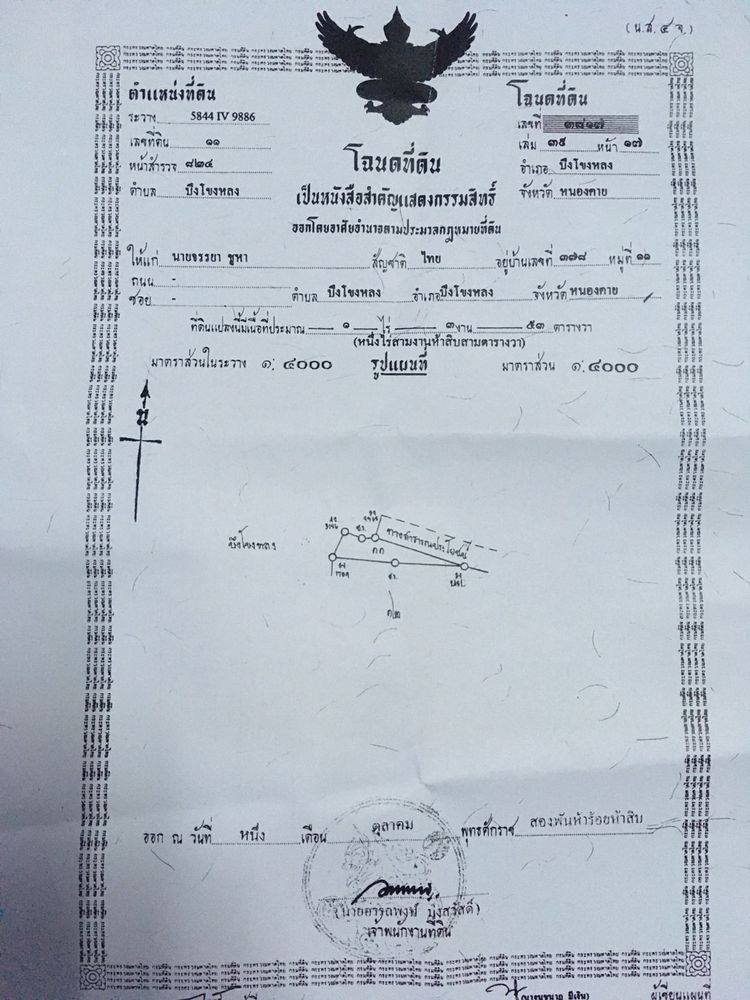 (น.ส.๔ จ.)
ตำแหน่งที่ดิน
ระวาง 5844 IV 9886
เลขที่ดิน ๑๑
หน้าสำรวจ ๘๒๔
ตำบล บึงโขงหลง
โฉนดที่ดิน
เลขที่ ๓๘๑๗
เล่ม ๓๙ หน้า ๑๗
อำเภอ บึงโขงหลง
จังหวัด หนองคาย
โฉนดที่ดิน
เป็นหนังสือสำคัญแสดงกรรมสิทธิ์
ออกโดยอาศัยอำนาจตามประมวลกฎหมายที่ดิน
ให้แก่ นายจรรยา ชูหา สัญชาติ ไทย อยู่บ้านเลขที่ ๓๗๘ หมู่ที่ ๑๑
ถนน -
ซอย - ตำบล บึงโขงหลง อำเภอบึงโขงหลง จังหวัด หนองคาย
ที่ดินแปลงนี้มีเนื้อที่ประมาณ ๑ ไร่ ๓ งาน ๕๓ ตารางวา
(หนึ่งไร่สามงานห้าสิบสามตารางวา)
มาตราส่วนในระวาง ๑: ๔๐๐๐ รูปแผนที่ มาตราส่วน ๑: ๔๐๐๐
น
ทางสาธารณประโยชน์
บึงโขงหลง
๑๑
๑๒
ออก ณ วันที่ หนึ่ง เดือน ตุลาคม พุทธศักราช สองพันห้าร้อยห้าสิบ
เจ้าพนักงานที่ดิน
ผู้เขียนแผนที่